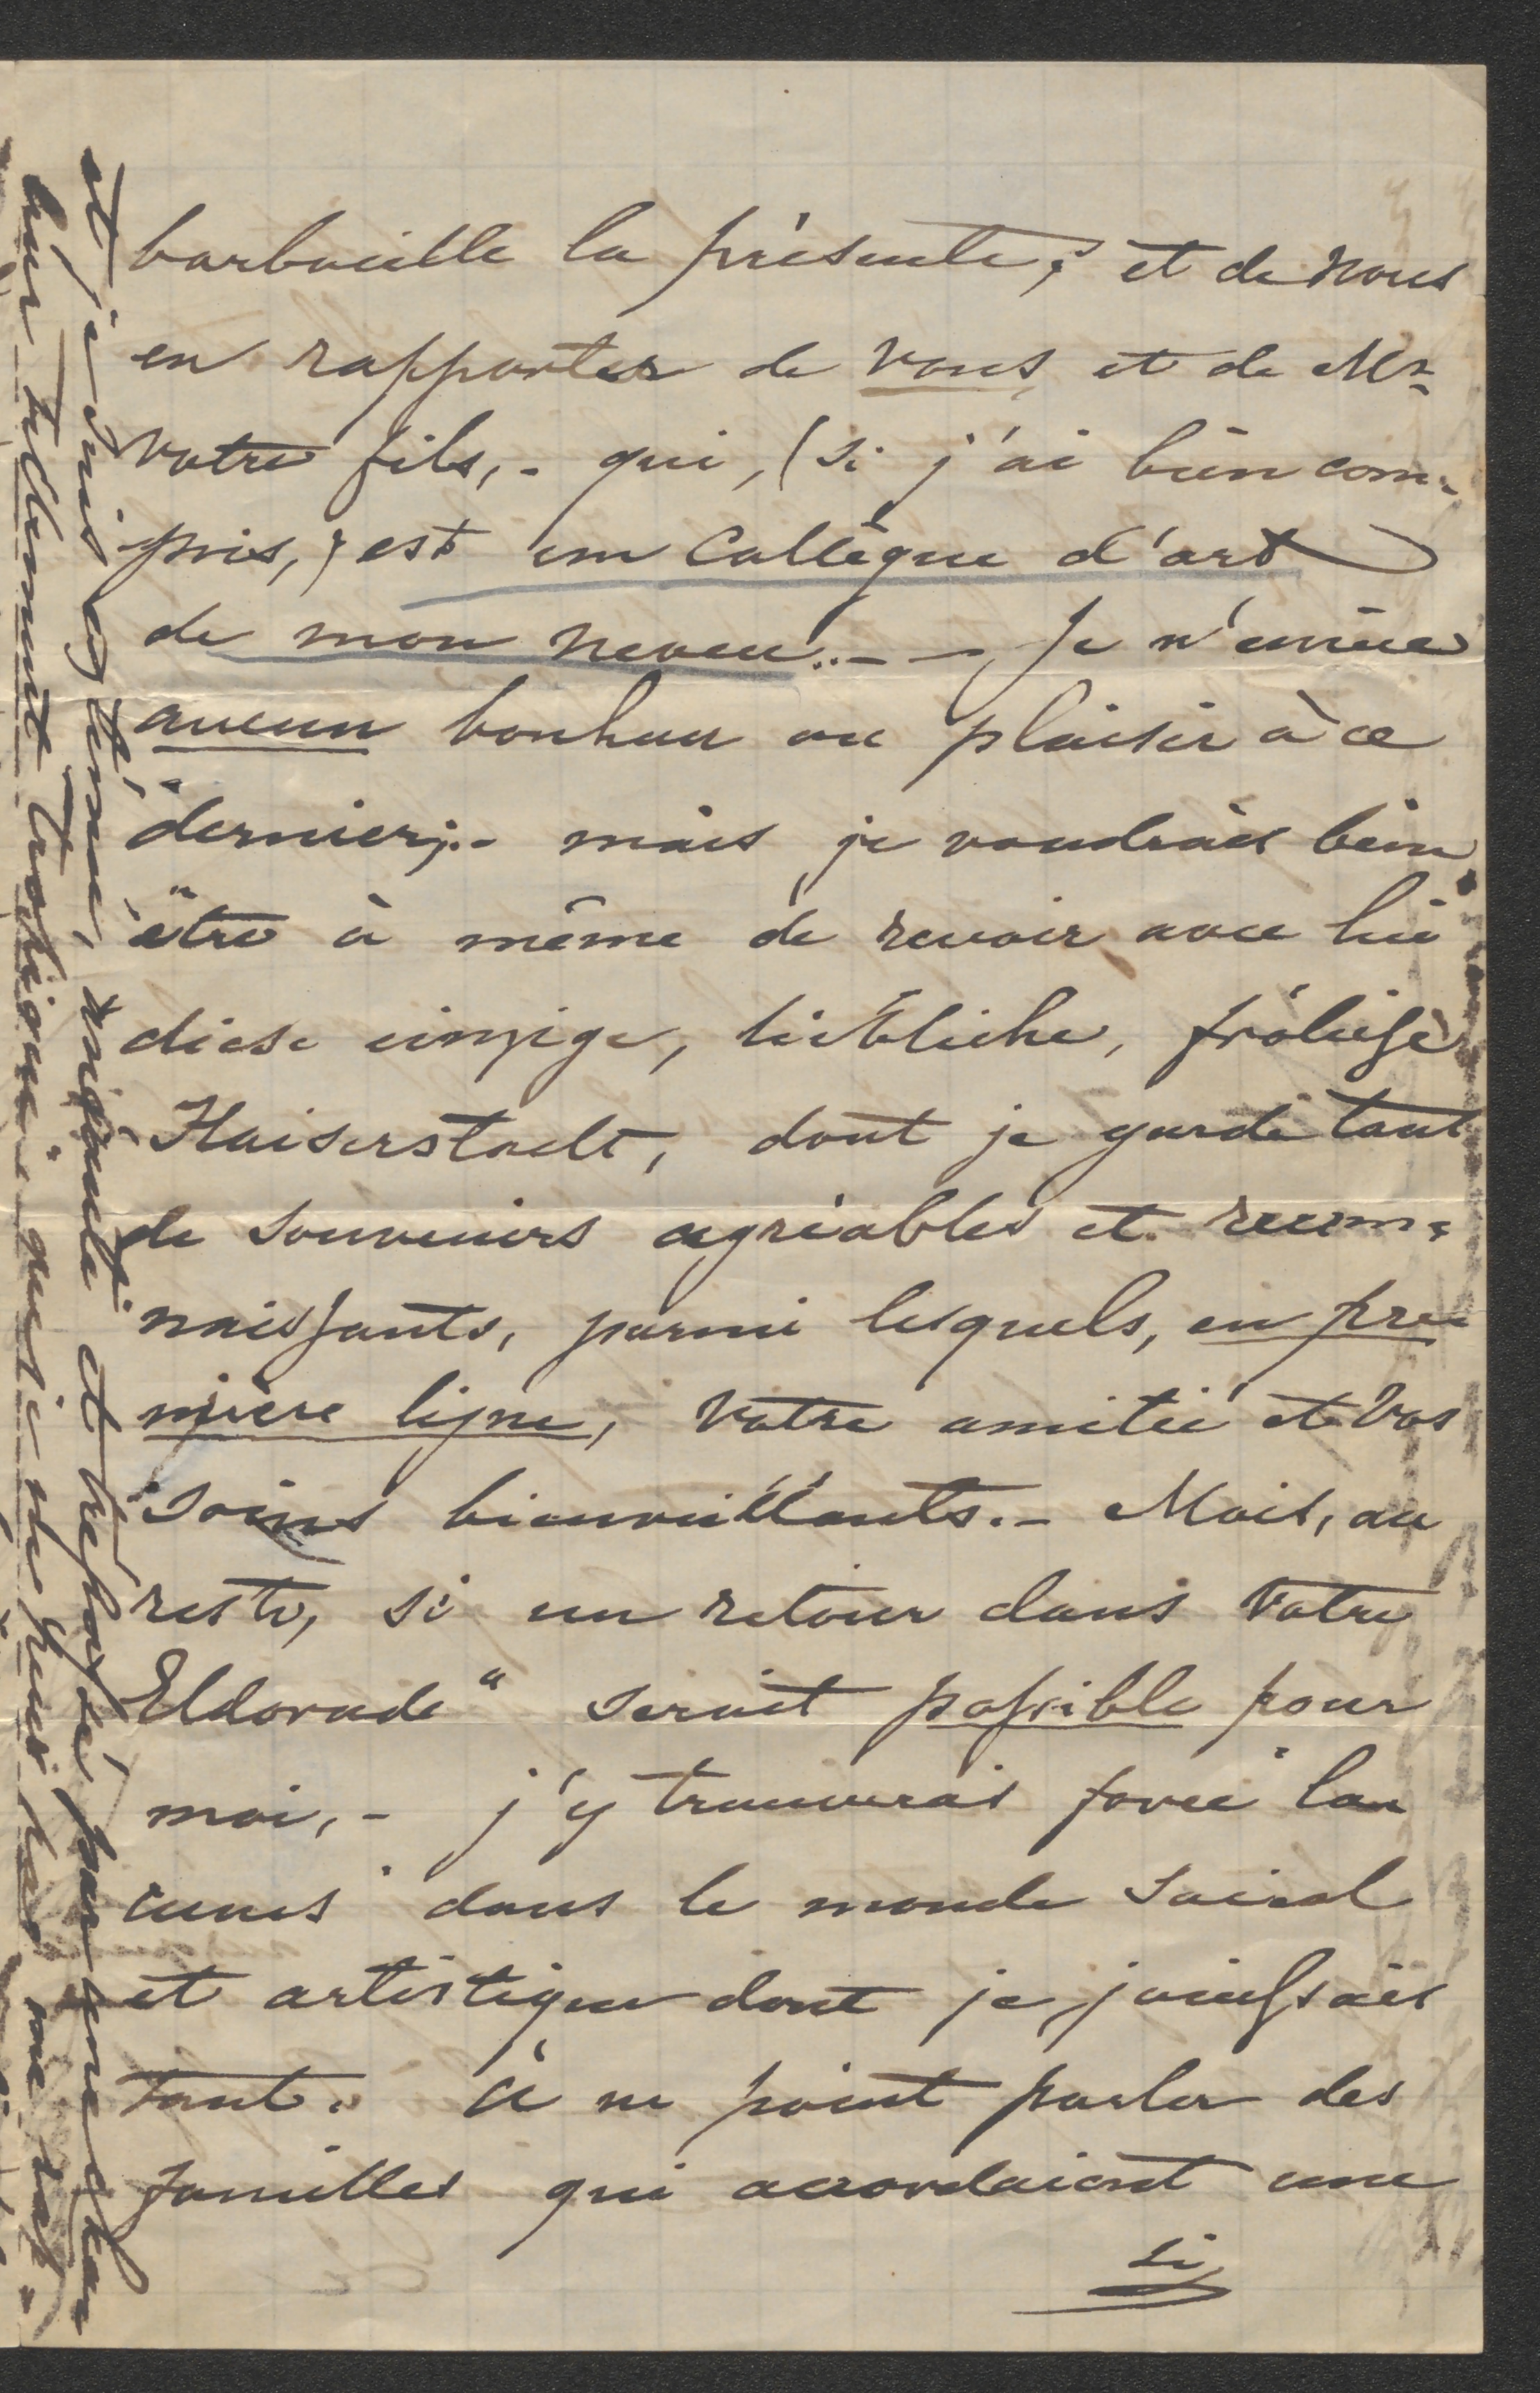 barbouille la présente; et de nous
en rapporter de vous, et de Mr
votre fils,- qui, (si j'ai bien com-
pris,) est un Collègue d'art
de mon neveu..- - Je n'envie
aucun bonheur ou plaisir à ce
dernier;.- mais je voudrais bien
être à même de revoir avec lui
diese einzige, liebliche, fröhliche
Kaiserstadt, dont je garde tant
de souvenirs agréables et recon-
naissants, parmi lesquels, en pre-
mière ligne, votre amitié et vos
soins bienveillants.- Mais, au
reste, si un retour dans votre
Eldorado" serait possible pour
moi,- j'y trouverais force "la-
cunes" dans le monde social
et artistique dont je jouissais
tant. à ne point parler des
familles qui accordaient une
si
et je suis exténué, et
bien tellement